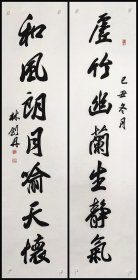 虚竹幽蘭生静氣
己丑冬月
和風朗月喻天懷
林剑丹